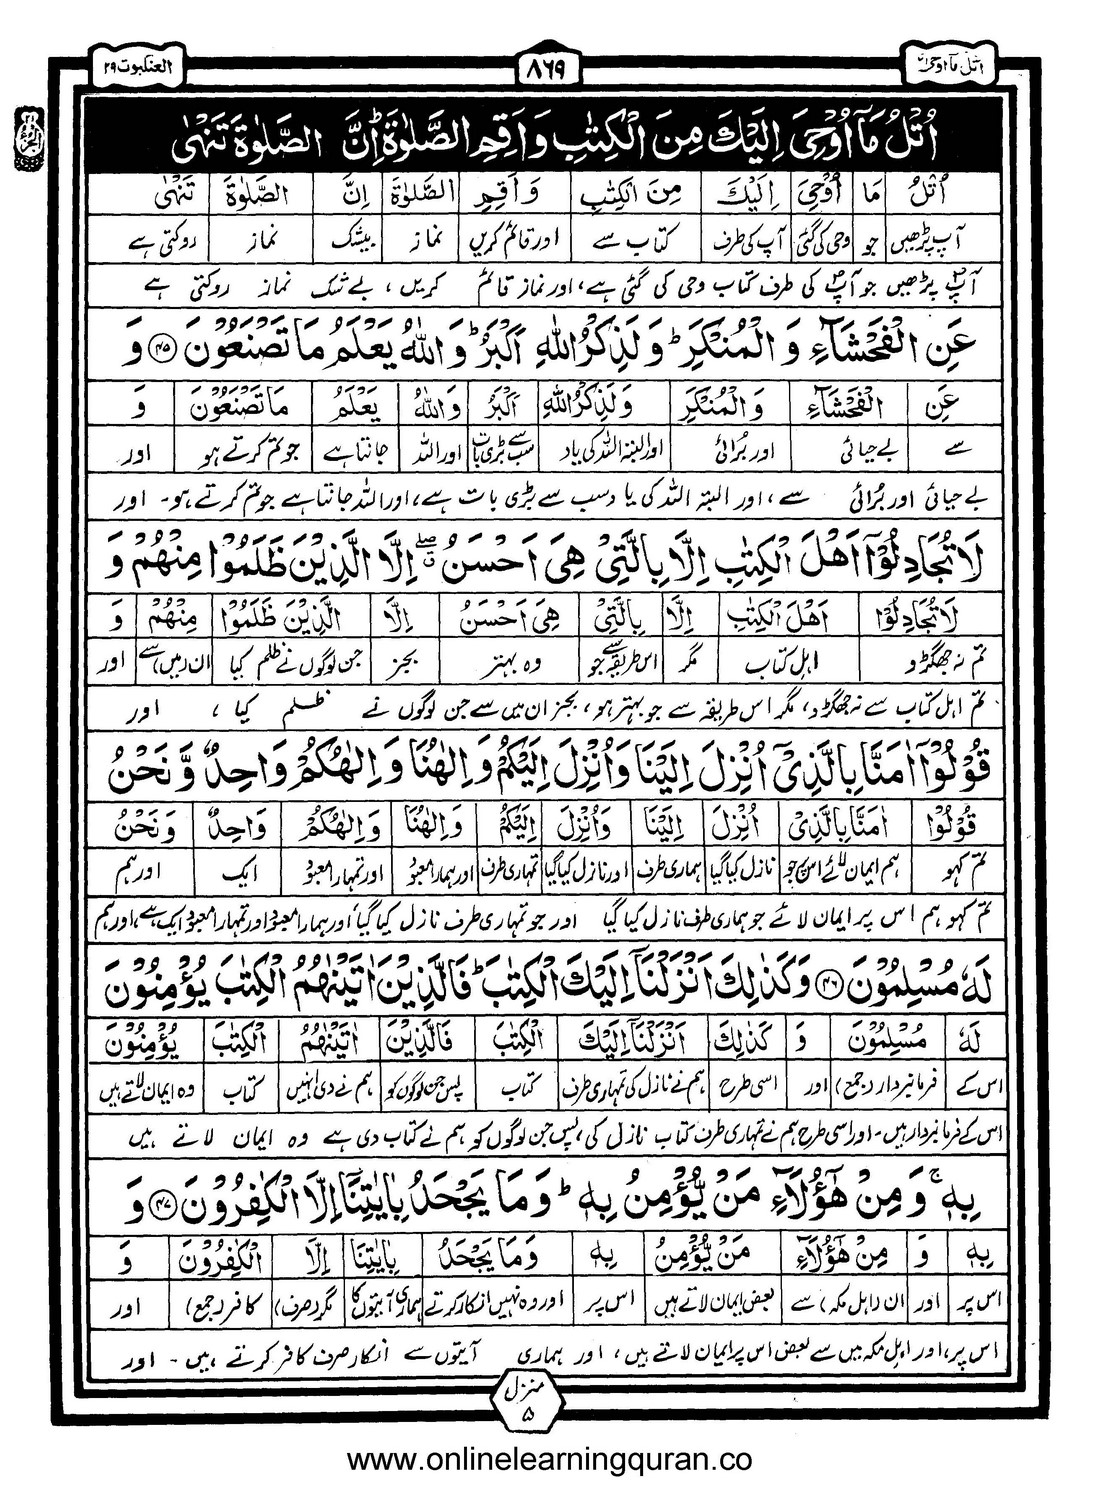 اتل مآ اوحی ۲۱
۸۶۹
العنکبوت ۲۹
اُتْلُ مَاۤ اُوْحِیَ اِلَیْكَ مِنَ الْكِتٰبِ وَ اَقِمِ الصَّلٰوةَ ؕ اِنَّ الصَّلٰوةَ تَنْهٰی
اُتْلُ مَا اُوْحِیَ اِلَیْكَ مِنَ الْكِتٰبِ وَ اَقِمِ الصَّلٰوةَ اِنَّ الصَّلٰوةَ تَنْهٰی
آپ پڑھیں جو وحی کی گئی آپ کی طرف کتاب سے اور قائم کریں نماز بیشک نماز روکتی ہے
آپؐ پڑھیں جو آپؐ کی طرف کتاب وحی کی گئی ہے، اور نماز قائم کریں ، بے شک نماز روکتی ہے
عَنِ الْفَحْشَآءِ وَ الْمُنْكَرِ ؕ وَ لَذِكْرُ اللّٰهِ اَكْبَرُ ؕ وَ اللّٰهُ یَعْلَمُ مَا تَصْنَعُوْنَ ﴿۴۵﴾ وَ
عَنِ الْفَحْشَآءِ وَ الْمُنْكَرِ وَ لَذِكْرُ اللّٰهِ اَكْبَرُ وَ اللّٰهُ یَعْلَمُ مَا تَصْنَعُوْنَ وَ
سے بے حیائی اور بُرائی اور البتہ اللہ کی یاد سب سے بڑی بات اور اللہ جانتا ہے جو تم کرتے ہو اور
بے حیائی اور بُرائی سے ، اور البتہ اللہ کی یاد سب سے بڑی بات ہے، اور اللہ جانتا ہے جو تم کرتے ہو۔ اور
لَا تُجَادِلُوْۤا اَهْلَ الْكِتٰبِ اِلَّا بِالَّتِیْ هِیَ اَحْسَنُ ۖق اِلَّا الَّذِیْنَ ظَلَمُوْا مِنْهُمْ وَ
لَا تُجَادِلُوْا اَهْلَ الْكِتٰبِ اِلَّا بِالَّتِیْ هِیَ اَحْسَنُ اِلَّا الَّذِیْنَ ظَلَمُوْا مِنْهُمْ وَ
تم نہ جھگڑو اہل کتاب مگر اس طریقہ سے جو وہ بہتر بجز جن لوگوں نے ظلم کیا ان (میں) سے اور
تم اہل کتاب سے نہ جھگڑو، مگر اس طریقہ سے جو بہتر ہو، بجز ان میں سے جن لوگوں نے ظلم کیا ، اور
قُوْلُوْۤا اٰمَنَّا بِالَّذِیْۤ اُنْزِلَ اِلَیْنَا وَ اُنْزِلَ اِلَیْكُمْ وَ اِلٰهُنَا وَ اِلٰهُكُمْ وَاحِدٌ وَّ نَحْنُ
قُوْلُوْا اٰمَنَّا بِالَّذِیْ اُنْزِلَ اِلَیْنَا وَ اُنْزِلَ اِلَیْكُمْ وَ اِلٰهُنَا وَ اِلٰهُكُمْ وَاحِدٌ وَ نَحْنُ
تم کہو ہم ایمان لائے اس پر جو نازل کیا گیا ہماری طرف اور نازل کیا گیا تمہاری طرف اور ہمارا معبود اور تمہارا معبود ایک اور ہم
تم کہو ہم اس پر ایمان لائے جو ہماری طرف نازل کیا گیا اور جو تمہاری طرف نازل کیا گیا، اور ہمارا معبود اور تمہارا معبود ایک ہے، اور ہم
لَهٗ مُسْلِمُوْنَ ﴿۴۶﴾ وَ كَذٰلِكَ اَنْزَلْنَاۤ اِلَیْكَ الْكِتٰبَ ؕ فَالَّذِیْنَ اٰتَیْنٰهُمُ الْكِتٰبَ یُؤْمِنُوْنَ
لَهٗ مُسْلِمُوْنَ وَ كَذٰلِكَ اَنْزَلْنَاۤ اِلَیْكَ الْكِتٰبَ فَالَّذِیْنَ اٰتَیْنٰهُمُ الْكِتٰبَ یُؤْمِنُوْنَ
اس کے فرمانبردار (جمع) اور اسی طرح ہم نے نازل کی تمہاری طرف کتاب پس جن لوگوں کو ہم نے دی انہیں کتاب وہ ایمان لاتے ہیں
اس کے فرمانبردار ہیں۔ اور اسی طرح ہم نے تمہاری طرف کتاب نازل کی، پس جن لوگوں کو ہم نے کتاب دی ہے وہ ایمان لاتے ہیں
بِهٖ ۚ وَ مِنْ هٰۤؤُلَآءِ مَنْ یُّؤْمِنُ بِهٖ ؕ وَ مَا یَجْحَدُ بِاٰیٰتِنَاۤ اِلَّا الْكٰفِرُوْنَ ﴿۴۷﴾ وَ
بِهٖ وَ مِنْ هٰۤؤُلَآءِ مَنْ یُّؤْمِنُ بِهٖ وَ مَا یَجْحَدُ بِاٰیٰتِنَا اِلَّا الْكٰفِرُوْنَ وَ
اس پر اور ان (اہل مکہ) سے بعض ایمان لاتے ہیں اس پر اور وہ نہیں انکار کرتے ہماری آیتوں کا مگر (صرف) کافر (جمع) اور
اس پر، اور اہل مکہ میں سے بعض اس پر ایمان لاتے ہیں، اور ہماری آیتوں سے انکار صرف کافر کرتے ہیں ۔ اور
منزل
۵
www.onlinelearningquran.co